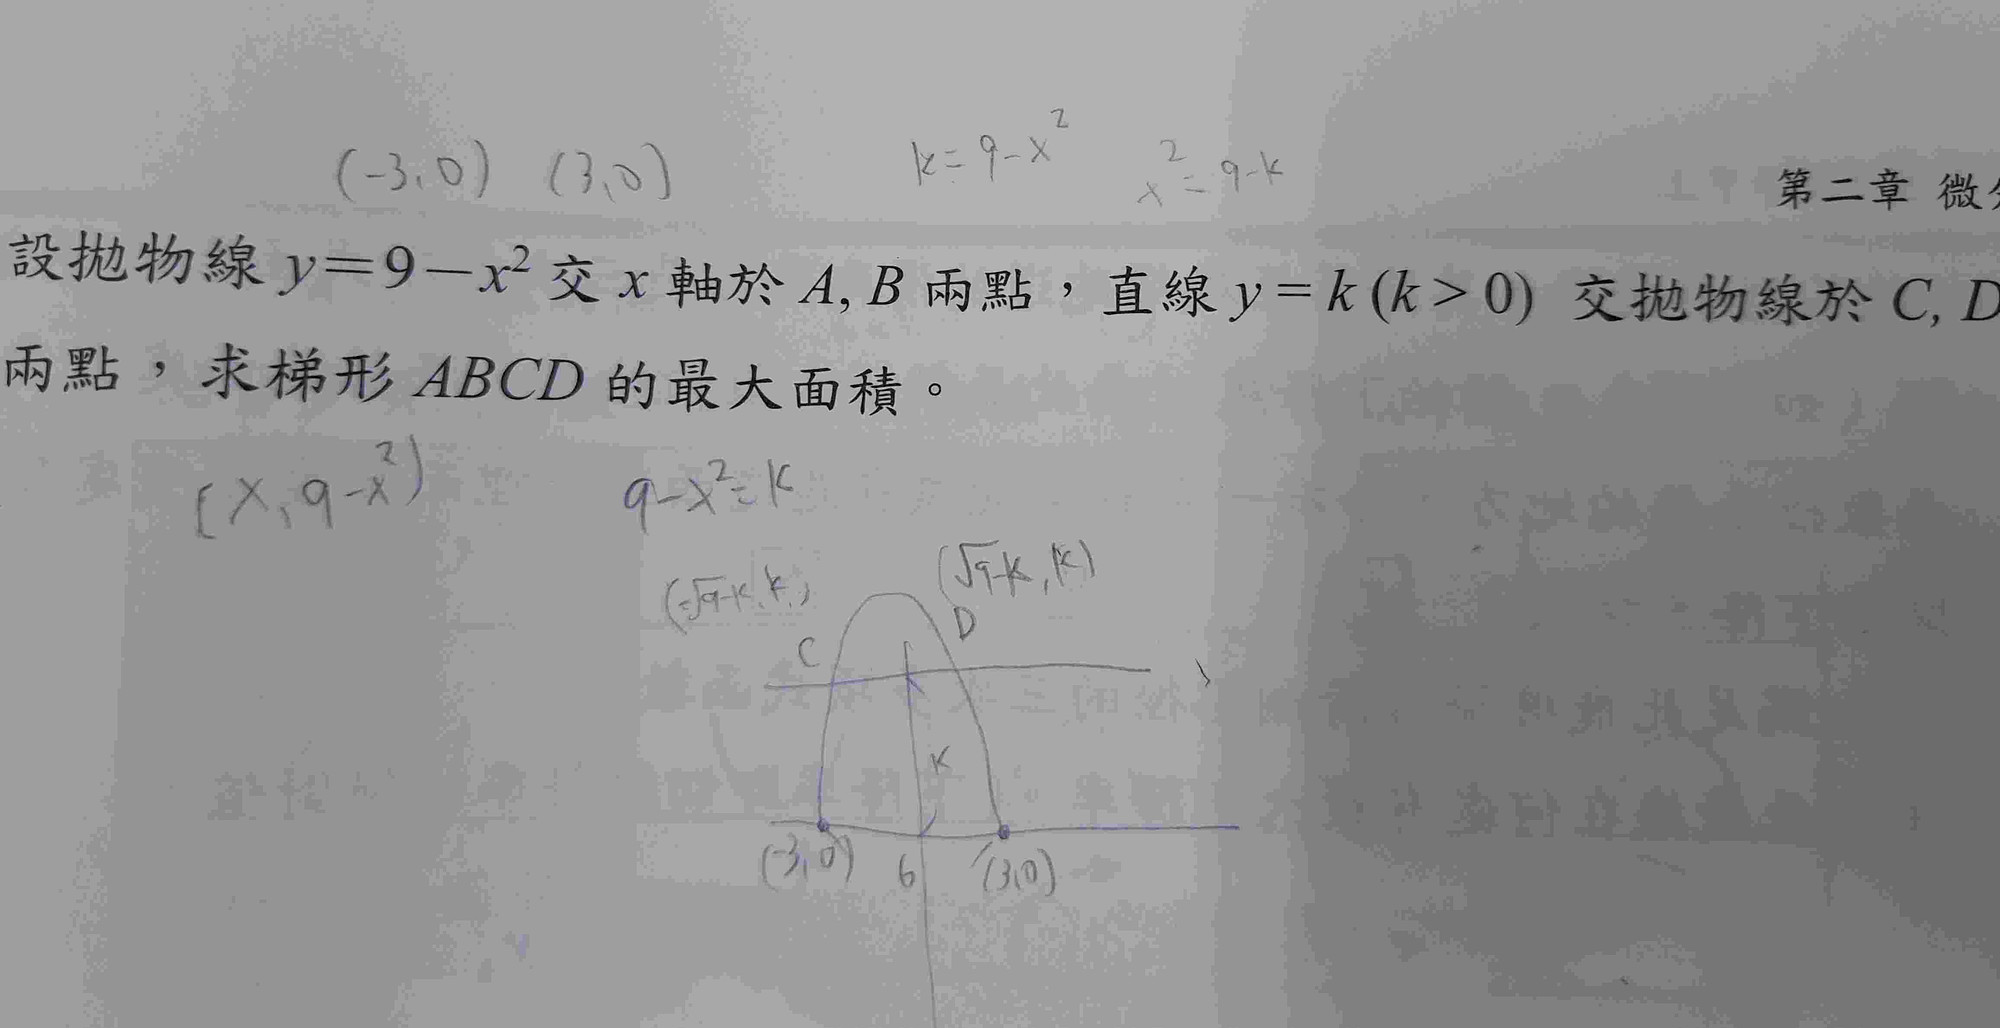 (-3,0) (3,0) k=9-x² x²=9-k
第二章 微
設拋物線 y=9-x² 交 x 軸於 A, B 兩點，直線 y=k (k>0) 交拋物線於 C, D
兩點，求梯形 ABCD 的最大面積。
(x, 9-x²) 9-x²=k
(-√9-k, k) (√9-k, k)
C D
k
(-3,0) 6 (3,0)